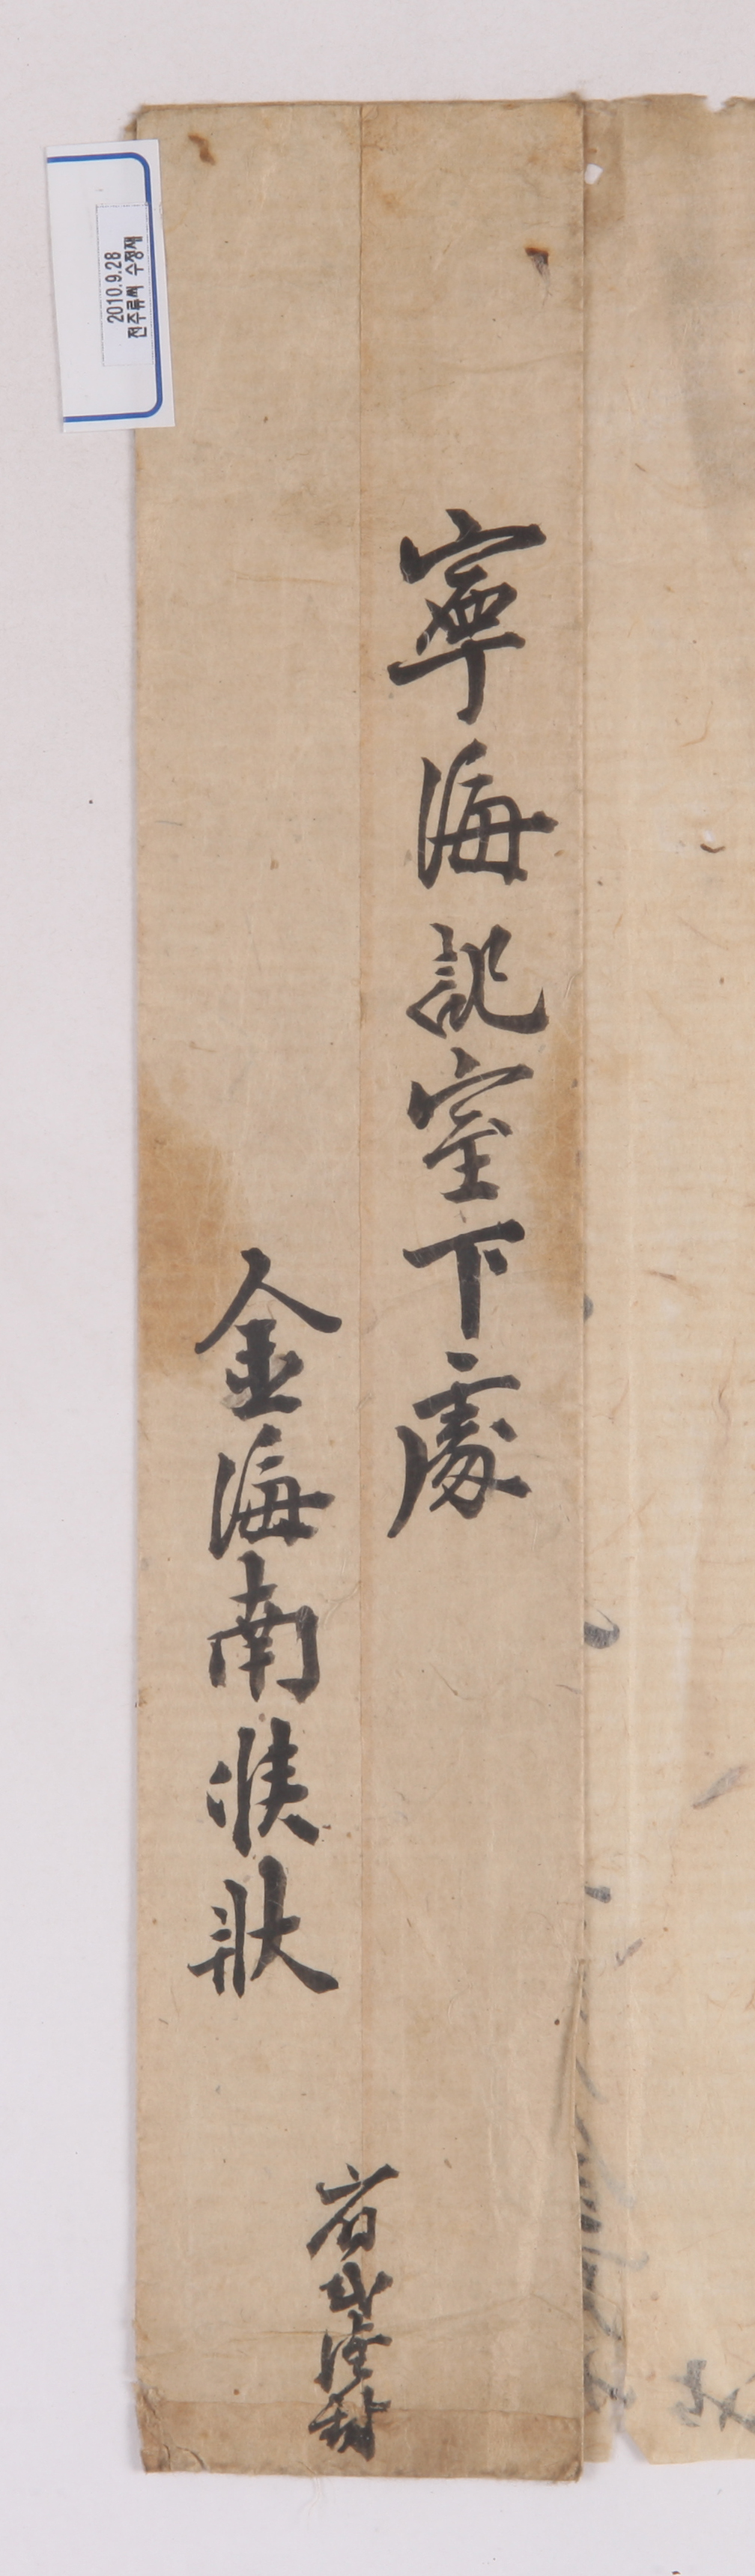 寧海記室下處
金海南候狀
省式謹封
2010.9.28
전주류씨 수정재